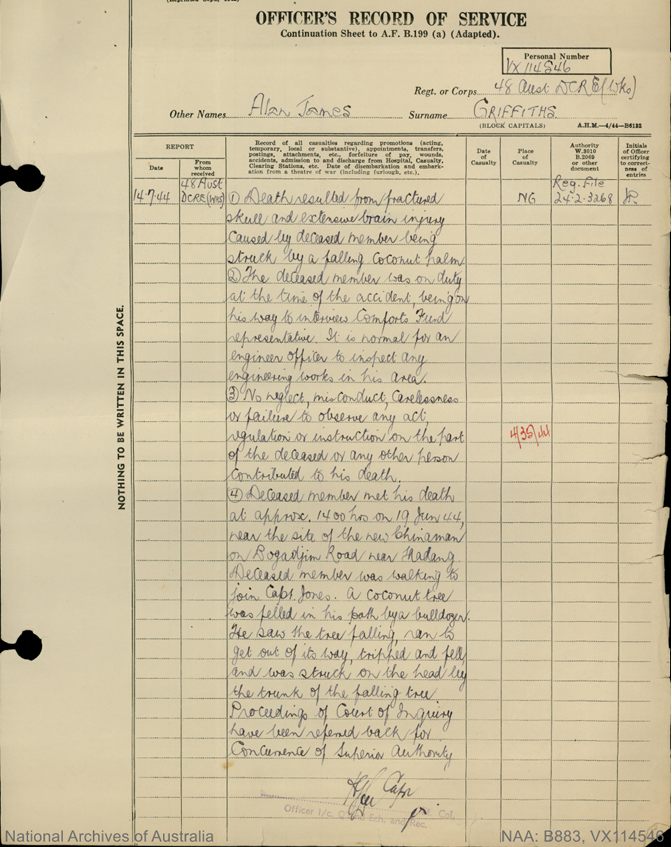 OFFICER'S RECORD OF SERVICE
Continuation Sheet to A.F. B.199 (a) (Adapted).
Personal Number
VX114546
Regt. or Corps 48 Aust DCRE (Wks)
Other Names Alan James Surname GRIFFITHS
(BLOCK CAPITALS) A.H.M.—4/44—B6132
REPORT
Date
From whom received
Record of all casualties regarding promotions (acting, temporary, local or substantive), appointments, transfers, postings, attachments, etc., forfeiture of pay, wounds, accidents, admission to and discharge from Hospital, Casualty, Clearing Stations, etc. Date of disembarkation and embarkation from a theatre of war (including furlough, etc.).
Date of Casualty
Place of Casualty
Authority W.3010 B.2069 or other document
Initials of Officer certifying to correctness of entries
NOTHING TO BE WRITTEN IN THIS SPACE.
48 Aust Reg. File
14-7-44 DCRE (Wks) (1) Death resulted from fractured NG 24-2-3268
skull and extensive brain injury
caused by deceased member being
struck by a falling coconut palm
(2) The deceased member was on duty
at the time of the accident, being on
his way to interview Comforts Fund
representative. It is normal for an
engineer officer to inspect any
engineering works in his area.
(3) No neglect, misconduct, carelessness
or failure to observe any act,
regulation or instruction on the part
4/35/44
of the deceased or any other person
contributed to his death.
(4) Deceased member met his death
at approx. 1400 hrs on 19 Jun 44,
near the site of the new Chinaman
on Bogadjim Road near Madang
Deceased member was walking to
join Capt Jones. A coconut tree
was felled in his path by a bulldozer.
He saw the tree falling, ran to
get out of its way, tripped and fell
and was struck on the head by
the trunk of the falling tree
Proceedings of Court of Inquiry
have been referred back for
Concurrence of Superior Authority
Capt
Officer i/c, Ech. and Rec.
National Archives of Australia
NAA: B883, VX114546